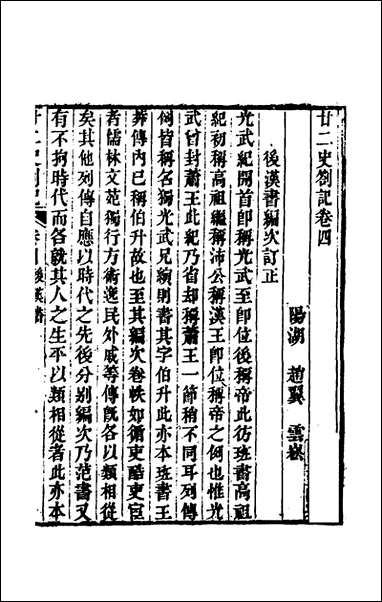 廿二史劄記卷四
陽湖 趙翼 雲崧
後漢書編次訂正
光武紀開首卽稱光武至卽位後稱帝此彷班書高祖
紀初稱高祖繼稱沛公稱漢王卽位稱帝之例也惟光
武曾封蕭王此紀乃省却稱蕭王一節稍不同耳列傳
例皆稱名獨光武兄縯則書其字伯升此亦本班書王
莽傳內已稱伯升故也至其編次卷帙如循吏酷吏宦
者儒林文苑獨行方術逸民外戚等傳旣各以類相從
矣其他列傳自應以時代之先後分別編次乃范書又
有不拘時代而各就其人之生平以類相從者此亦本